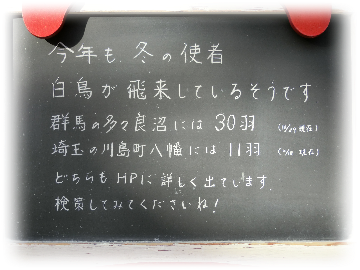 今年も、冬の使者
白鳥が飛来しているそうです
群馬の多々良沼には 30羽 (12/29 現在)
埼玉の川島町八幡には 11羽 現在)
どちらもHPに詳しく出ています。
検索してみてくださいね!